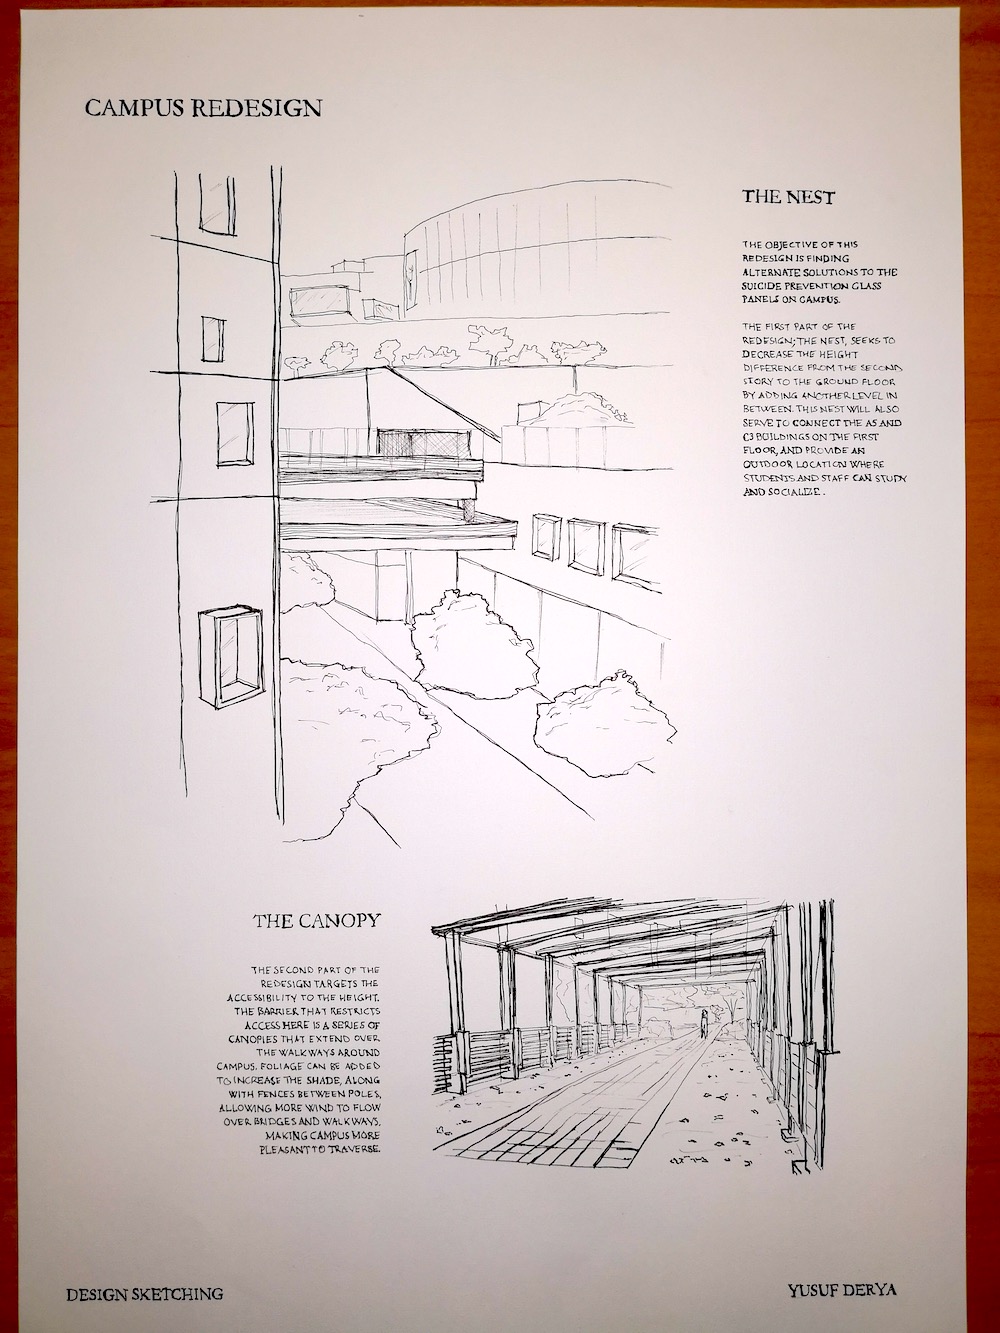 CAMPUS REDESIGN
THE NEST
THE OBJECTIVE OF THIS
REDESIGN IS FINDING
ALTERNATE SOLUTIONS TO THE
SUICIDE PREVENTION GLASS
PANELS ON CAMPUS.
THE FIRST PART OF THE
REDESIGN; THE NEST, SEEKS TO
DECREASE THE HEIGHT
DIFFERENCE FROM THE SECOND
STORY TO THE GROUND FLOOR
BY ADDING ANOTHER LEVEL IN
BETWEEN. THIS NEST WILL ALSO
SERVE TO CONNECT THE A5 AND
C3 BUILDINGS ON THE FIRST
FLOOR, AND PROVIDE AN
OUTDOOR LOCATION WHERE
STUDENTS AND STAFF CAN STUDY
AND SOCIALIZE.
THE CANOPY
THE SECOND PART OF THE
REDESIGN TARGETS THE
ACCESSIBILITY TO THE HEIGHT.
THE BARRIER THAT RESTRICTS
ACCESS HERE IS A SERIES OF
CANOPIES THAT EXTEND OVER
THE WALKWAYS AROUND
CAMPUS. FOLIAGE CAN BE ADDED
TO INCREASE THE SHADE, ALONG
WITH FENCES BETWEEN POLES,
ALLOWING MORE WIND TO FLOW
OVER BRIDGES AND WALKWAYS,
MAKING CAMPUS MORE
PLEASANT TO TRAVERSE.
DESIGN SKETCHING
YUSUF DERYA